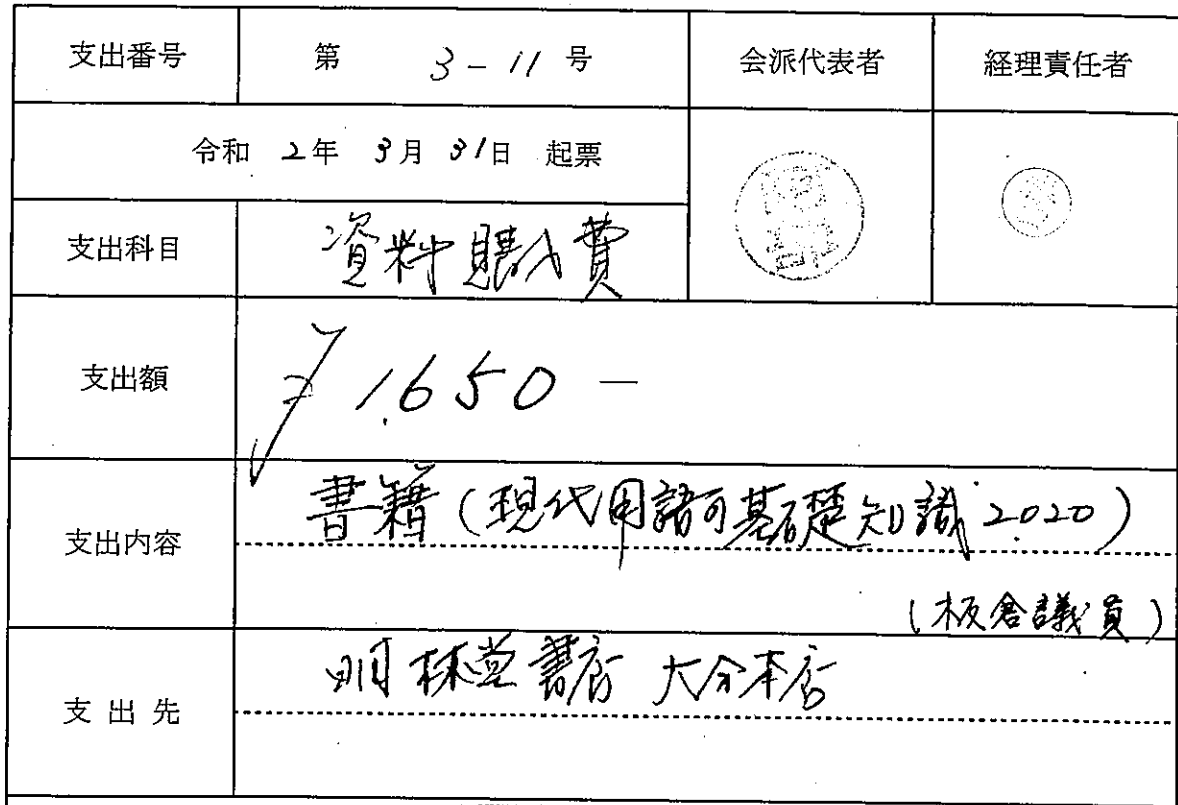 支出番号 第 3-11 号 会派代表者 経理責任者
令和 2年 3月 31日 起票
支出科目 資料購入費
支出額 ¥1,650 —
支出内容 書籍(現代用語の基礎知識2020)
(板倉議員)
支出先 明林堂書店 大分本店